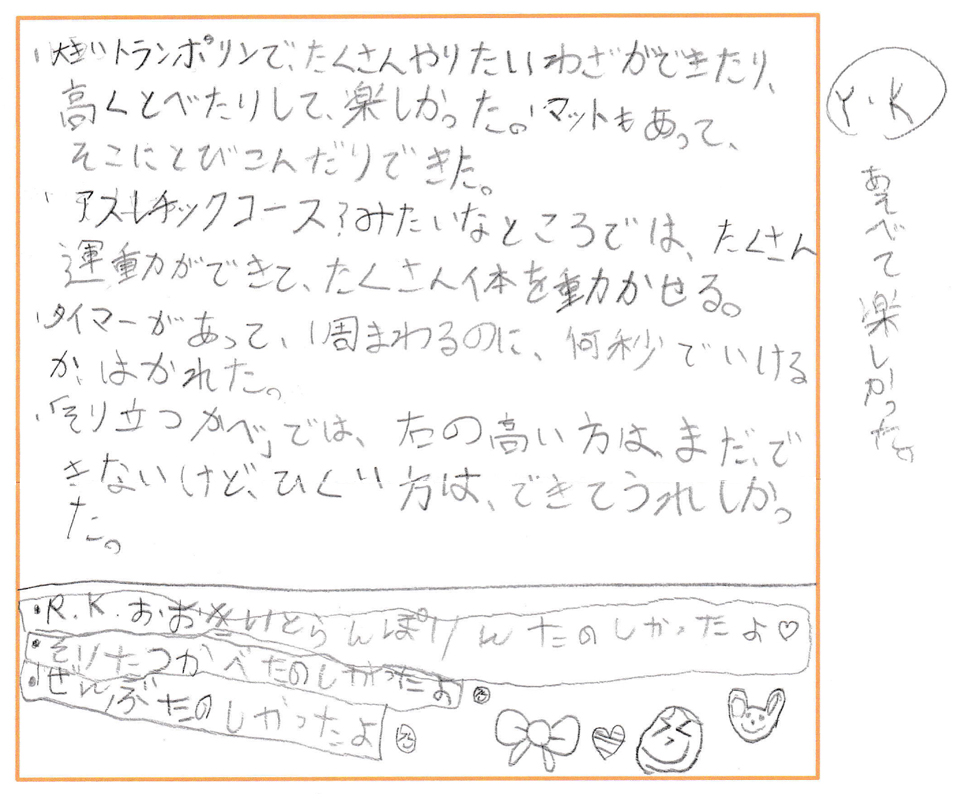 ・大きいトランポリンで、たくさんやりたいわざができたり、
高くとべたりして、楽しかった。マットもあって、
そこにとびこんだりできた。
・アスレチックコース?みたいなところでは、たくさん
運動ができて、たくさん体を動かせる。
・タイマーがあって、1周まわるのに、何秒でいける
か、はかれた。
・「そり立つかべ」では、右の高い方は、まだ、で
きないけど、ひくい方は、できてうれしかっ
た。
Y・K
あそべて楽しかった。
・R.K.おおきいとらんぽりんたのしかったよ♡
・そりたつかべたのしかったよ
・ぜんぶたのしかったよ